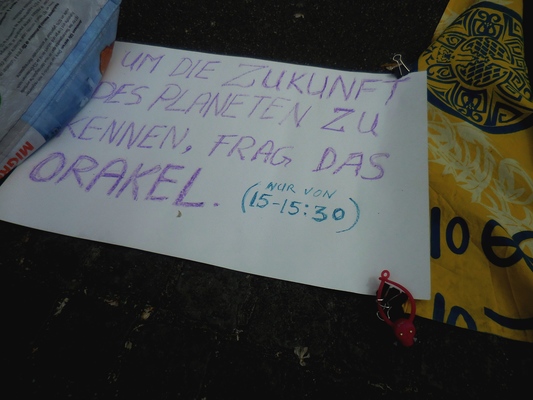 UM DIE ZUKUNFT
DES PLANETEN ZU
KENNEN, FRAG DAS
ORAKEL.
(NUR VON
15-15:30)
MIGR
10
10